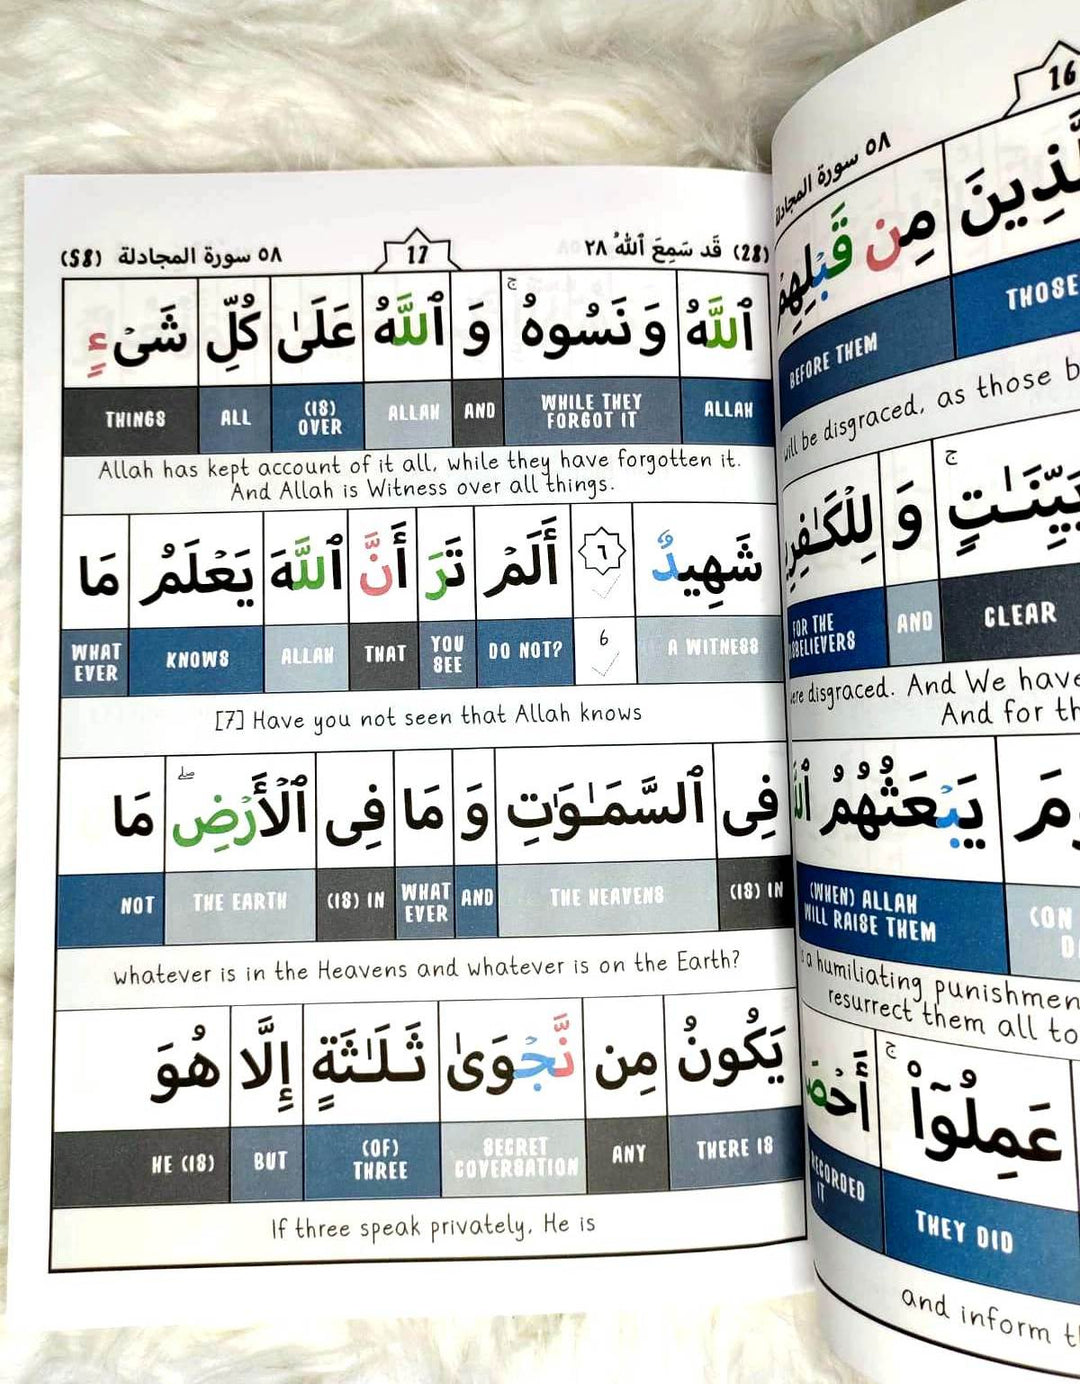 (58) ٥٨ سورة المجادلة
17
(28) قَد سَمِعَ ٱللَّهُ ٢٨
ٱللَّهُ وَ نَسُوهُ ۚ وَ ٱللَّهُ عَلَىٰ كُلِّ شَىْءٍ
THINGS ALL (IS) OVER ALLAH AND WHILE THEY FORGOT IT ALLAH
Allah has kept account of it all, while they have forgotten it.
And Allah is Witness over all things.
شَهِيدٌ ٦ أَلَمْ تَرَ أَنَّ ٱللَّهَ يَعْلَمُ مَا
WHAT EVER KNOWS ALLAH THAT YOU SEE DO NOT? 6 A WITNESS
[7] Have you not seen that Allah knows
فِى ٱلسَّمَـٰوَٰتِ وَ مَا فِى ٱلْأَرْضِ ۖ مَا
NOT THE EARTH (IS) IN WHAT EVER AND THE HEAVENS (IS) IN
whatever is in the Heavens and whatever is on the Earth?
يَكُونُ مِن نَّجْوَىٰ ثَلَـٰثَةٍ إِلَّا هُوَ
HE (IS) BUT (OF) THREE SECRET COVERSATION ANY THERE IS
If three speak privately, He is
16
٥٨ سورة المجادلة
مِن قَبْلِهِمْ
BEFORE THEM THOSE
will be disgraced, as those
بَيِّنَـٰتٍ ۚ وَ
FOR THE AND CLEAR
were disgraced. And We have
And for
يَبْعَثُهُمُ
(WHEN) ALLAH WILL RAISE THEM (ON
a humiliating
resurrect them all to
عَمِلُوٓا۟ ۚ
IT THEY DID
and inform